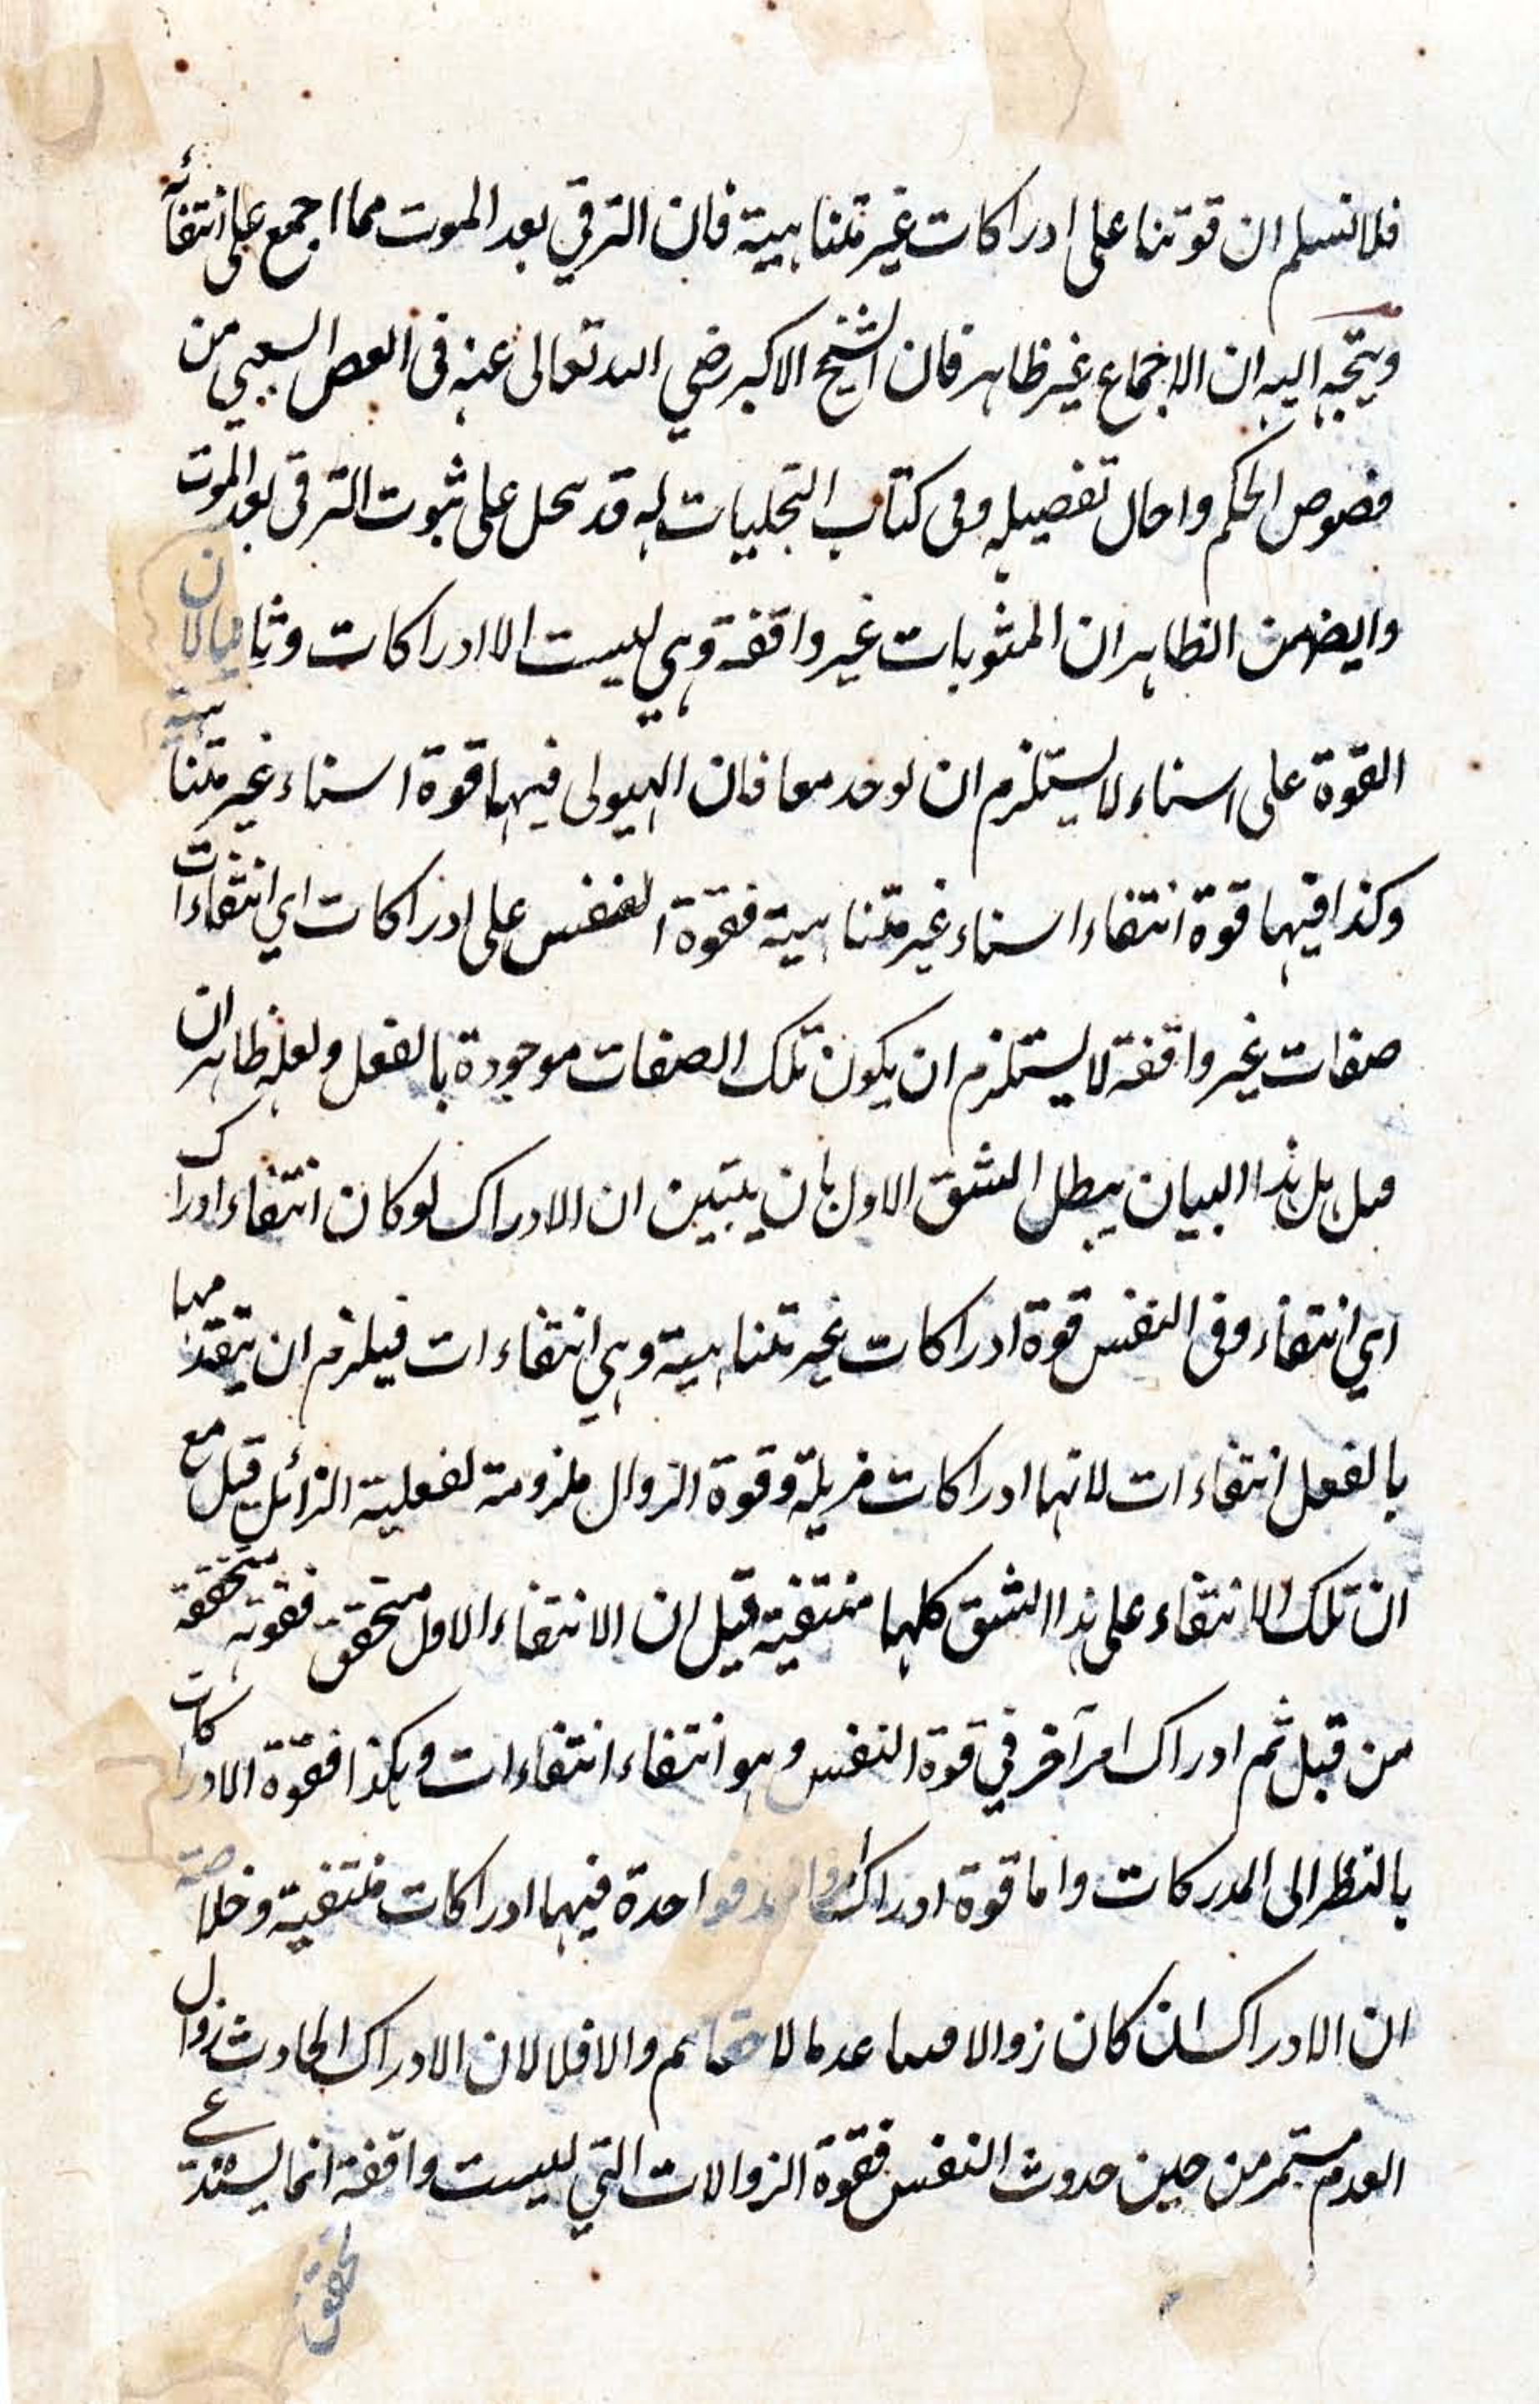 فلا نسلم ان قوتنا على ادراكات غير متناهية فان الترقي بعد الموت مما اجمع على انتفائه
ويتجه اليه ان الاجماع غير ظاهر فان الشيخ الاكبر رضي الله تعالى عنه في الفص الشعيبي من
فصوص الحكم واحال تفصيله وفى كتاب التجليات له قد على ثبوت الترقى بعد الموت
وايضا من الظاهر ان المثوبات غير واقفة وهي ليست الا ادراكات وثانيا لان
القوة على اشياء لا يستلزم ان يوجد معا فان الهيولى فيها قوة اشياء غير متناهية
وكذا فيها قوة انتفاء اشياء غير متناهية فقوة النفس على ادراكات اي انتفاءات
صفات غير واقفة لا يستلزم ان يكون تلك الصفات موجودة بالفعل ولعله ظاهر ان
قيل بل هذا البيان يبطل الشق الاول بان يتبين ان الادراك لو كان انتفاء ادراك
اي انتفاء وفى النفس قوة ادراكات غير متناهية وهي انتفاءات فيلزم ان يتقدمها
بالفعل انتفاءات لانها ادراكات مزيلة وقوة الزوال ملزومة لفعلية الزائل قيل مع
ان تلك الانتفاء على هذا الشق كلها منتفية قيل ان الانتفاء الاول متحقق فقوته متحققة
من قبل ثم ادراك امر آخر في قوة النفس وهو انتفاء انتفاءات وهكذا فقوة الادراكات
بالنظر الى المدركات واما قوة ادراك واحدة فيها ادراكات منتفية وخلاصة
ان الادراك ان كان زوالا والا فلا لان الادراك الحادث زوال
العدم مستمر من حين حدوث النفس فقوة الزوالات التي ليست واقفة انما يستدعي
تحقق